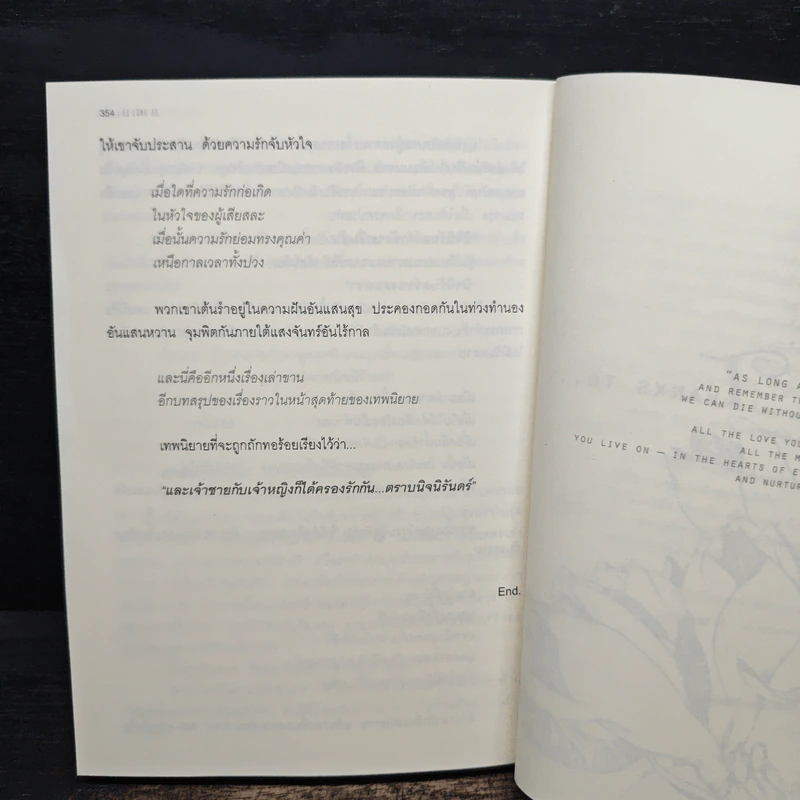 354
ให้เขาจับประสาน ด้วยความรักจับหัวใจ
เมื่อใดที่ความรักก่อเกิด
ในหัวใจของผู้เสียสละ
เมื่อนั้นความรักย่อมทรงคุณค่า
เหนือกาลเวลาทั้งปวง
พวกเขาเต้นรำอยู่ในความฝันอันแสนสุข ประคองกอดกันในท่วงทำนอง
อันแสนหวาน จุมพิตกันภายใต้แสงจันทร์อันไร้กาล
และนี่คืออีกหนึ่งเรื่องเล่าขาน
อีกบทสรุปของเรื่องราวในหน้าสุดท้ายของเทพนิยาย
เทพนิยายที่จะถูกถักทอร้อยเรียงไว้ว่า...
“และเจ้าชายกับเจ้าหญิงก็ได้ครองรักกัน...ตราบนิจนิรันดร์”
End.
"AS LONG A
AND REMEMBER T
WE CAN DIE WITHOU
ALL THE LOVE YOU
ALL THE M
YOU LIVE ON — IN THE HEARTS OF E
AND NURTUR